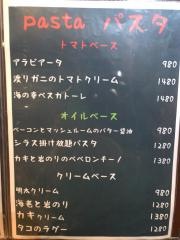 pasta パスタ
トマトベース
アラビアータ 980
渡りガニのトマトクリーム 1480
海の幸ペスカトーレ 1480
オイルベース
ベーコンとマッシュルームのバター醤油 980
シラス掛け放題パスタ 1280
カキと岩のりのペペロンチーノ 1380
クリームベース
明太クリーム 980
海老と岩のり 1280
カキクリーム 1380
タコのラグー 1280